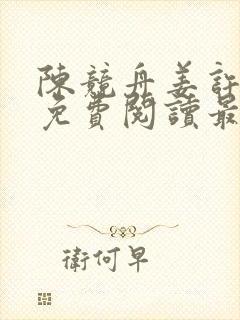 陳競舟姜訢
免費閱讀最
衛何早